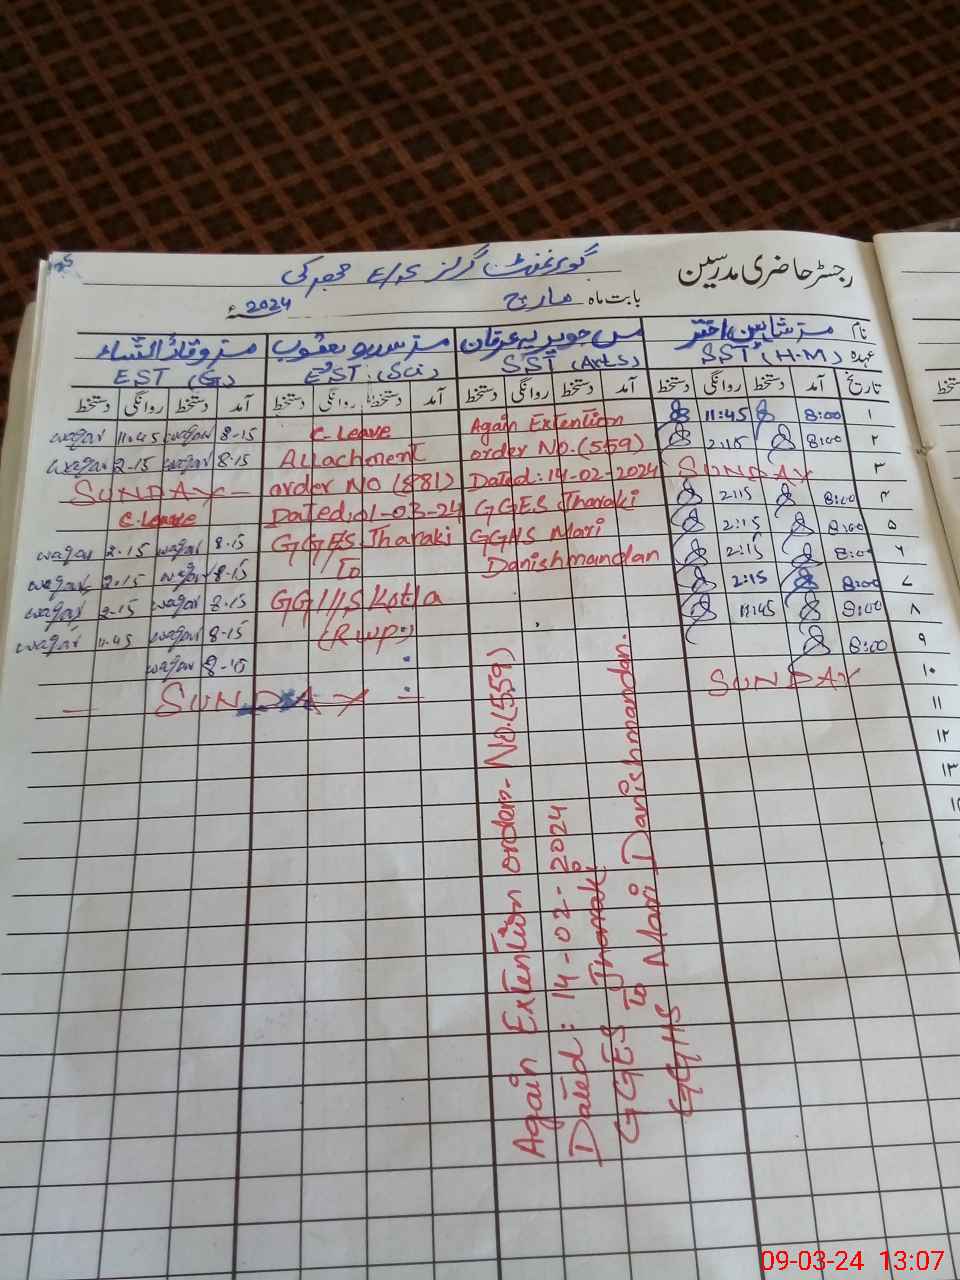 رجسٹر حاضری مدرسین گورنمنٹ گرلز E/S
بابت ماہ مارچ 2024ء
نام مسز شاہین اختر مس جویریہ عرفان
عہدہ SST (H.M) SST (Arts) EST (Sci) EST (G)
تاریخ آمد دستخط روانگی دستخط آمد دستخط روانگی دستخط آمد دستخط روانگی دستخط آمد دستخط روانگی دستخط
۱ 8:00 11:45 Again Extention C-Leave 8-15 waqar 11-45 waqar
۲ 8:00 2:15 order No. (559) Attachment 8-15 waqar 2-15 waqar
۳ SUNDAY Dated: 14-02-2024 order NO (881) SUNDAY
۴ 8:00 2:15 GGES Tharaki Dated: 01-03-24 C-Leave
۵ 8:00 2:15 GGHS Mari GGES Tharaki 8-15 waqar 2-15 waqar
۶ 8:00 2:15 Danishmandan To 8-15 waqar 2-15 waqar
۷ 8:00 2:15 GGHS Kotla 8-15 waqar 2-15 waqar
۸ 8:00 11:45 (Rwp) 8-15 waqar 11-45 waqar
۹ 8:00 8-15 waqar
۱۰ SUNDAY SUNDAY
۱۱
۱۲
۱۳
Again Extention order No. (559)
Dated: 14-02-2024
GGES Tharaki To Mari Danishmandan.
GGHS
09-03-24 13:07